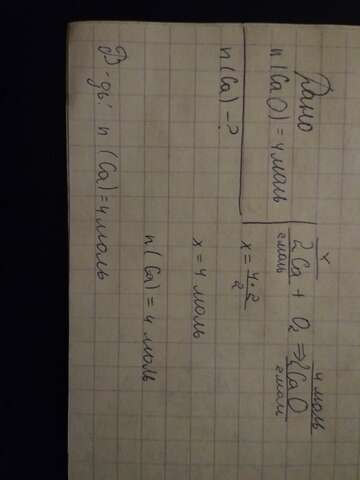 Дано
n(CaO) = 4 моль
n(Ca) - ?
x 4 моль
2Ca + O₂ => 2CaO
2 моль 2 моль
x = 4·2/2
x = 4 моль
n(Ca) = 4 моль
В-дь: n(Ca) = 4 моль